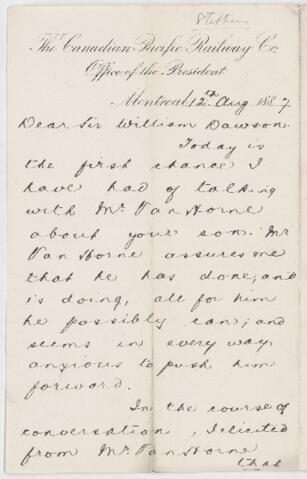 Stephen
The Canadian Pacific Railway Co.
Office of the President
Montreal, 12th Aug 1887.
Dear Sir William Dawson.
Today is
the first chance I
have had of talking
with Mr. Van Horne
about your son. Mr
Van Horne assures me
that he has done, and
is doing, all for him
he possibly can; and
seems in every way
anxious to push him
forward.
In the course of
conversation, I elicited
from Mr. Van Horne
that